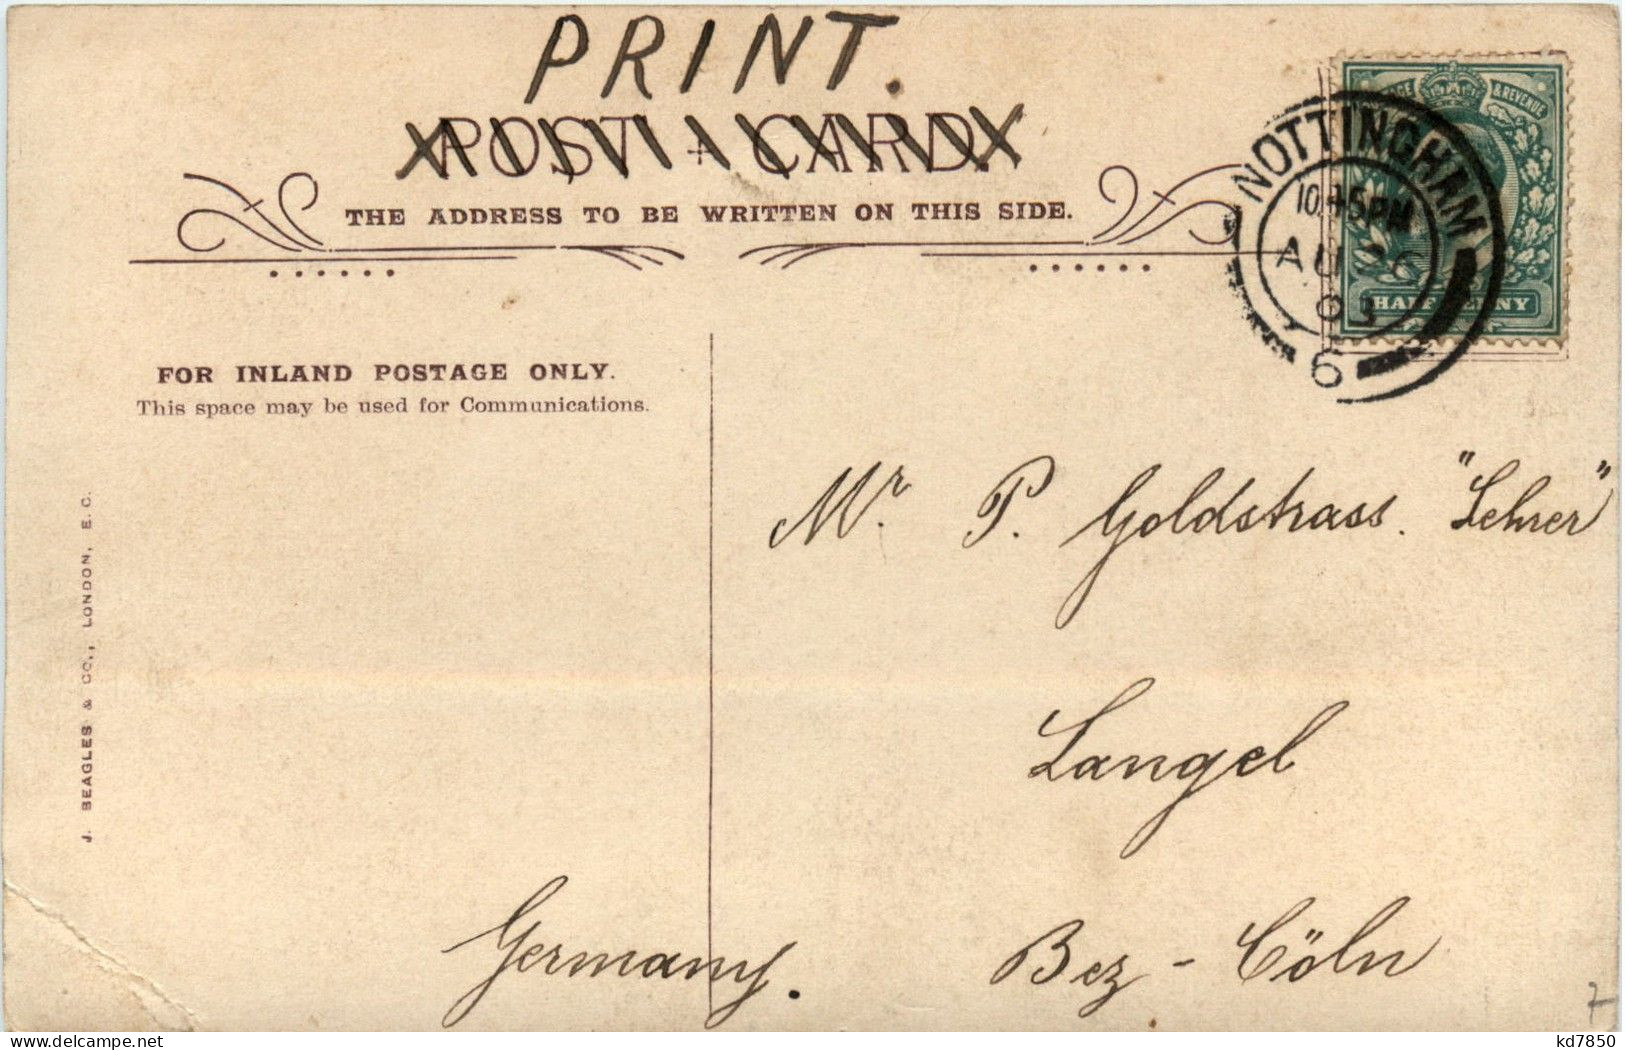 PRINT.
POST CARD.
THE ADDRESS TO BE WRITTEN ON THIS SIDE.
& REVENUE
NOTTINGHAM
10.45PM
AU 26
03
6
HALF PENNY
FOR INLAND POSTAGE ONLY.
This space may be used for Communications.
J. BEAGLES & CO., LONDON, E.C.
Mr. P. Goldstrass. "Lehrer"
Langel
Bez - Cöln
Germany.
7
kd7850